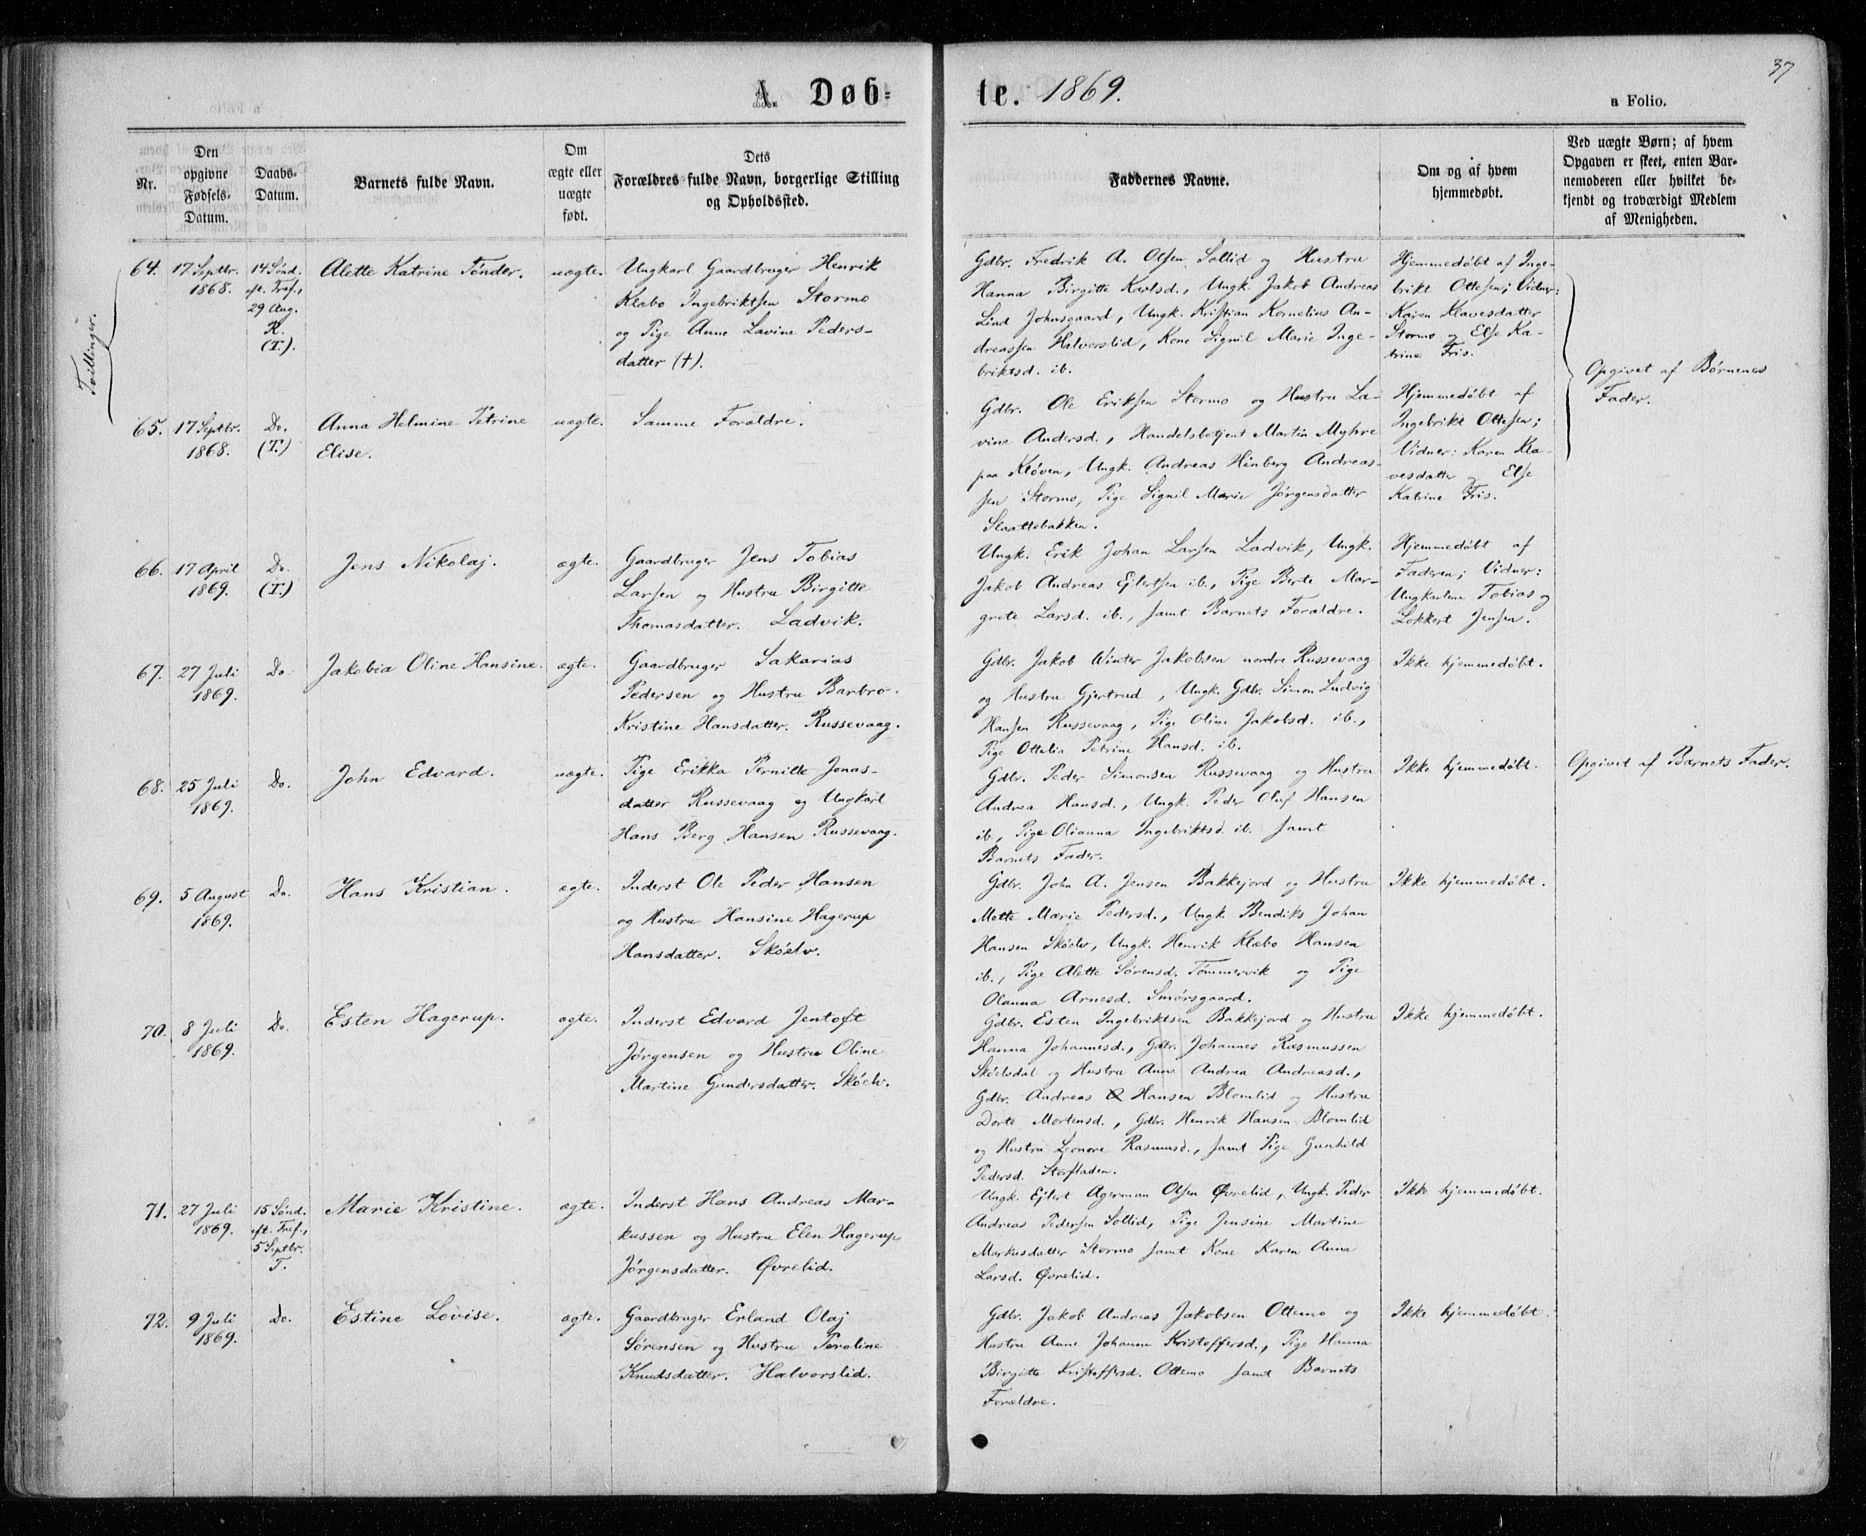 37
A Døb-
te. 1869.
a Folio.
Nr.
Den
opgivne
Fødsels-
Datum.
Daabs-
Datum.
Barnets fulde Navn.
Om
ægte eller
uægte
født.
Dets
Forældres fulde Navn, borgerlige Stilling
og Opholdssted.
Faddernes Navne.
Om og af hvem
hjemmedøbt.
Ved uægte Børn; af hvem
Opgaven er skeet, enten Bar-
nemoderen eller hvilket be-
kjendt og troværdigt Medlem
af Menigheden.
Tvillinger.
64.
17 Septbr.
1868.
14 Sønd.
eft. Tref.,
29 Aug.
K.
(T.).
Alette Katrine Tønder.
uægte.
Ungkarl Gaardbruger Henrik
Klæbo Ingebriktsen Stormo
og Pige Anne Lavine Peders-
datter (†).
Gdbr. Fredrik A. Olsen Sollid og Hustru
Hanna Birgitte Karlsd., Ungk. Jakob Andreas
Lind Johnsgaard, Ungk. Kristian Kornelius An-
dreassen Halvorslid, Kone Signil Marie Inge-
briktsd. ib.
Hjemmedøbt af Inge-
brikt Ottesen; Vidner:
Karen Klavesdatter
Stormo og Else Ka-
trine Fris.
Opgivet af Børnenes
Fader.
65.
17 Septbr.
1868.
Do.
(T.)
Anna Helmine Petrine
Elise.
uægte.
Samme Forældre.
Gdbr. Ole Eriksen Stormo og Hustru La-
vine Andersd., Handelsbetjent Martin Myhre
paa Kløven, Ungk. Andreas Hinberg Andreas-
sen Stormo, Pige Signil Marie Jørgensdatter
Slaattebakken.
Hjemmedøbt af
Ingebrikt Ottesen;
Vidner: Karen Kla-
vesdatter og Else
Katrine Fris.
66.
17 April
1869.
Do.
(T.)
Jens Nikolaj.
ægte.
Gaardbruger Jens Tobias
Larsen og Hustru Birgitte
Thomasdatter. Ladvik.
Ungk. Erik Johan Larsen Ladvik, Ungk.
Jakob Andreas Ejlertsen ib., Pige Berte Mar-
grete Larsd. ib., samt Barnets Forældre.
Hjemmedøbt af
Faderen; Vidner:
Ungkarlene Tobias og
Lokkert Jensen.
67.
27 Juli
1869.
Do.
Jakobia Oline Hansine.
ægte.
Gaardbruger Sakarias
Pedersen og Hustru Barbro
Kristine Hansdatter. Russevaag.
Gdbr. Jakob Winter Jakobsen nordre Russevaag
og Hustru Gjertrud, Ungk. Gdbr. Simon Ludvig
Hansen Russevaag, Pige Oline Jakobsd. ib.,
Pige Ottelia Petrine Hansd. ib.
Ikke hjemmedøbt.
68.
25 Juli
1869.
Do.
John Edvard.
uægte.
Pige Erikka Pernille Jonas-
datter Russevaag og Ungkarl
Hans Berg Hansen Russevaag.
Gdbr. Peder Simonsen Russevaag og Hustru
Andrea Hansd., Ungk. Peder Oluf Hansen
ib., Pige Olianna Ingebriktsd. ib. samt
Barnets Fader.
Ikke hjemmedøbt.
Opgivet af Barnets Fader.
69.
5 August
1869.
Do.
Hans Kristian.
ægte.
Inderst Ole Peder Hansen
og Hustru Hansine Hagerup
Hansdatter. Skøelv.
Gdbr. John A. Jensen Bakkejord og Hustru
Mette Marie Pedersd., Ungk. Bendiks Johan
Hansen Skøelv, Ungk. Henrik Klæbo Hansen
ib., Pige Alette Sørensd. Tømmervik og Pige
Olanna Arnesd. Smørsgaard.
Ikke hjemmedøbt.
70.
8 Juli
1869.
Do.
Esten Hagerup.
ægte.
Inderst Edvard Jentoft
Jørgensen og Hustru Oline
Martine Gundersdatter. Skøelv.
Gdbr. Esten Ingebriktsen Bakkejord og Hustru
Hanna Johannesd., Gdbr. Johannes Rasmussen
Skøelvdal og Hustru Anne Andrea Andreasd.,
Gdbr. Andreas Hansen Blomlid og Hustru
Dorte Mortensd., Gdbr. Henrik Hansen Blomlid
og Hustru Leonore Rasmusd., samt Pige Gunhild
Pedersd.
Ikke hjemmedøbt.
71.
27 Juli
1869.
15 Sønd.
eft. Tref.,
5 Septbr.
T.
Marie Kristine.
ægte.
Inderst Hans Andreas Mar-
kussen og Hustru Elen Hagerup
Jørgensdatter. Øvrelid.
Ungk. Ejlert Agerman Olsen Øvrelid, Ungk. Peder
Andreas Pedersen Sollid, Pige Jensine Martine
Markusdatter Stormo samt Kone Karen Anna
Larsd. Øvrelid.
Ikke hjemmedøbt.
72.
9 Juli
1869.
Do.
Estine Lovise.
ægte.
Gaardbruger Erland Olaj
Sørensen og Hustru Peroline
Knudsdatter. Halvorslid.
Gdbr. Jakob Andreas Jakobsen Ottemo og
Hustru Anne Johanna Kristoffersd., Pige Hanna
Birgitte Kristoffersd. Ottemo samt Barnets
Forældre.
Ikke hjemmedøbt.